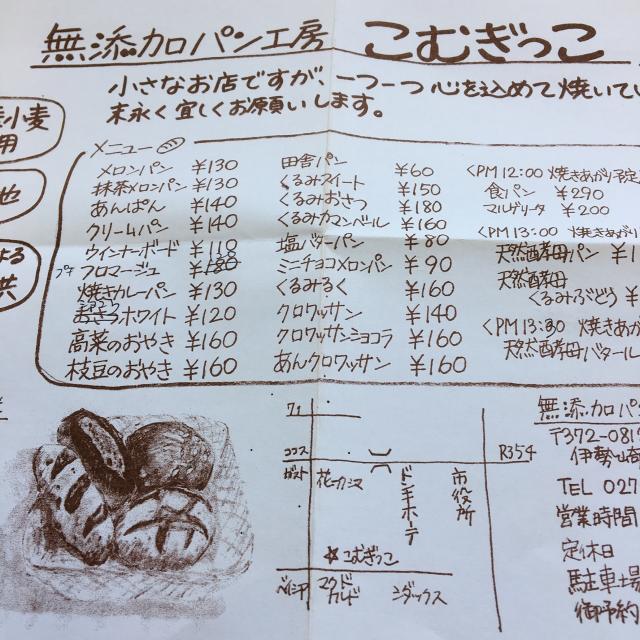 無添加パン工房 こむぎっこ
小さなお店ですが、一つ一つ心を込めて焼いてい
末永く宜しくお願いします。
小麦
用
也
メニュー
メロンパン ¥130
抹茶メロンパン ¥130
あんぱん ¥140
クリームパン ¥140
ウィンナーボード ¥110
プチフロマージュ
焼きカレーパン ¥130
ホワイト ¥120
高菜のおやき ¥160
枝豆のおやき ¥160
田舎パン ¥60
くるみスイート ¥150
くるみおさつ ¥180
くるみカマンベール ¥160
塩バターパン ¥80
ミニチョコメロンパン ¥90
くるみるく ¥160
クロワッサン ¥140
クロワッサンショコラ ¥160
あんクロワッサン ¥160
<PM12:00 焼きあがり予定
食パン ¥290
マルゲリータ ¥200
<PM13:00 焼きあが
天然酵母パン ¥1
天然酵母
くるみぶどう ¥
<PM13:30 焼きあが
天然酵母バタール
ココス
ガスト
花
ドンキホーテ
市役所
R354
☆こむぎっこ
ベイシア
マクドナルド
シダックス
無添加パ
〒372-081
伊勢崎
TEL 027
営業時間
定休日
駐車場
御予約